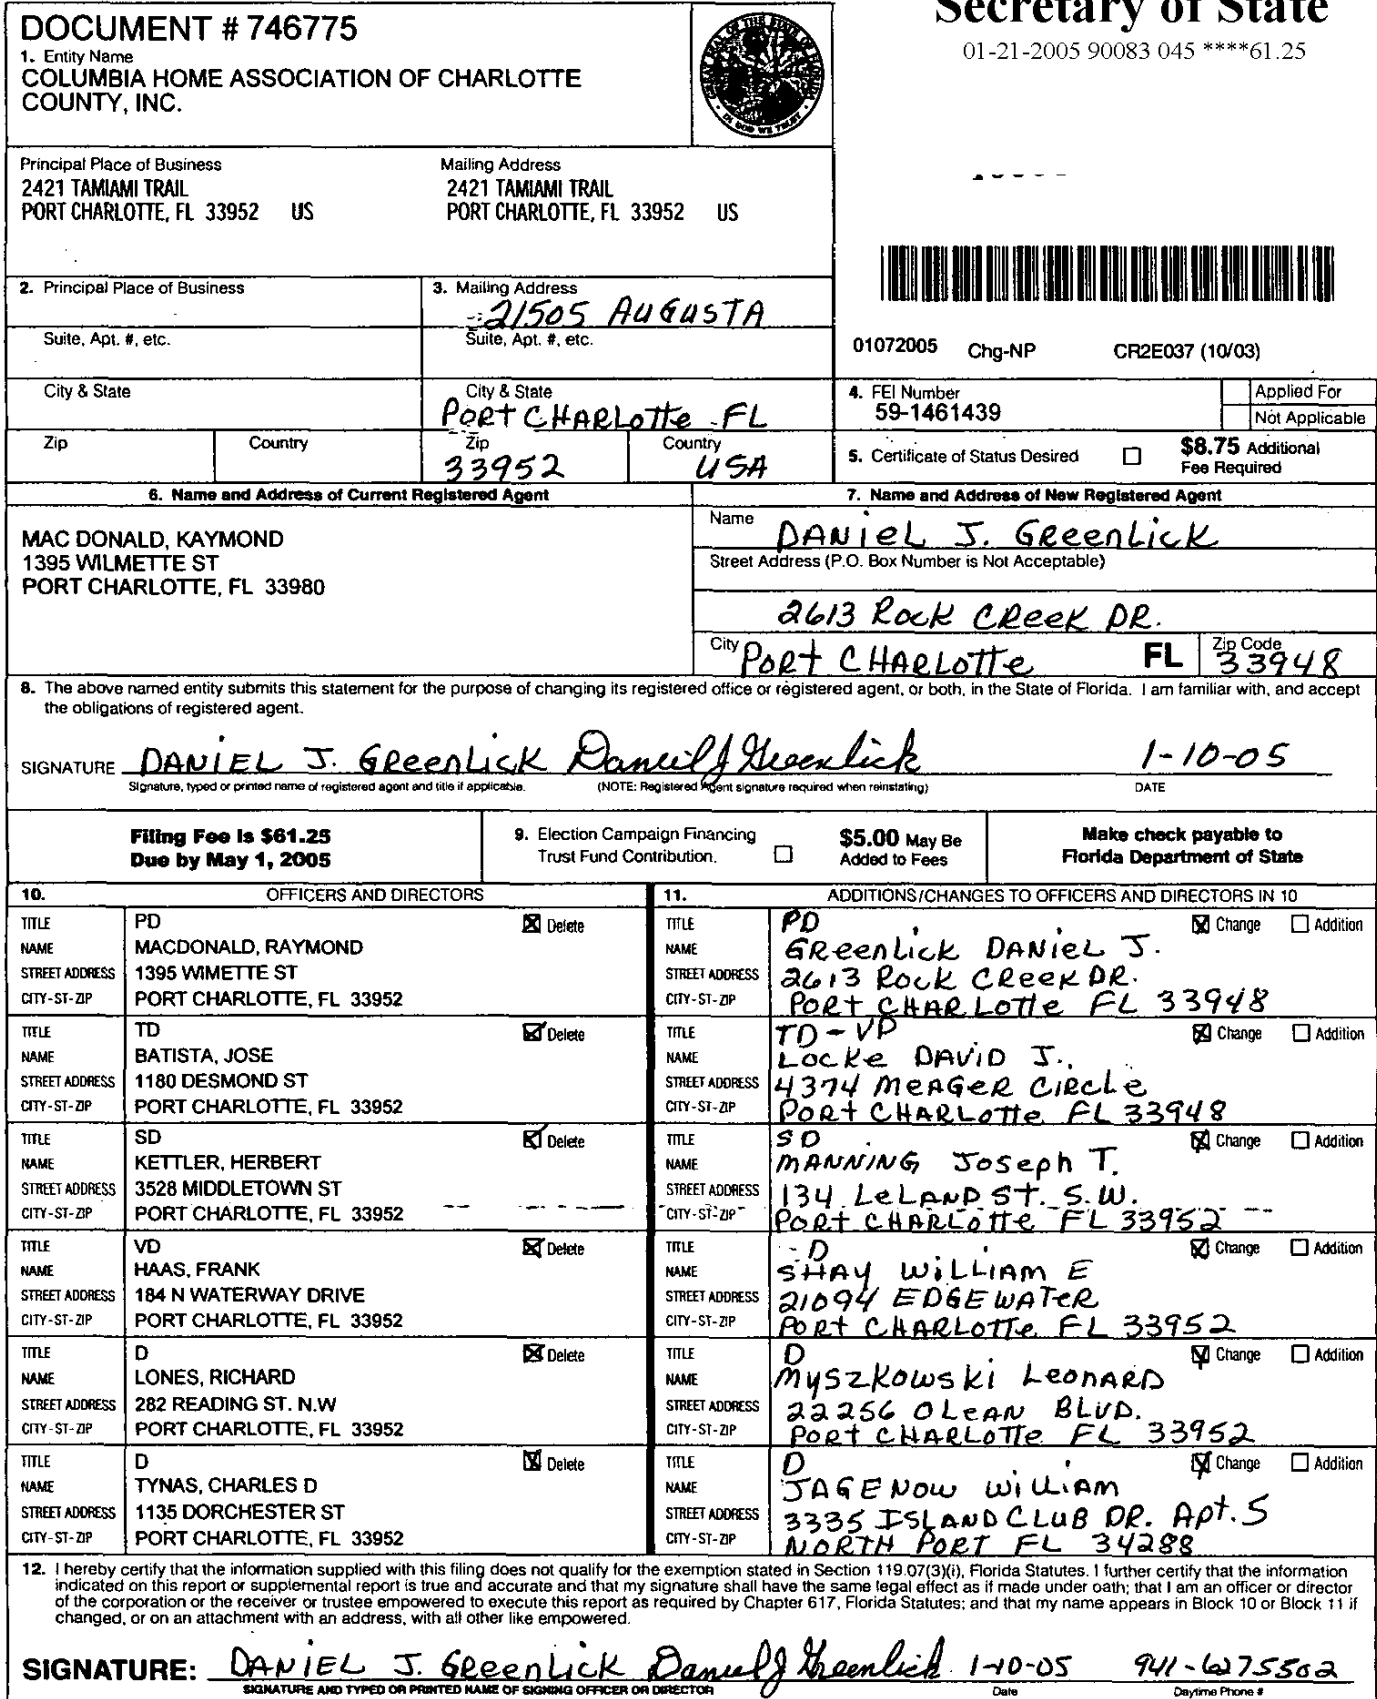 Secretary of State
01-21-2005 90083 045 ****61.25
DOCUMENT # 746775
1. Entity Name
COLUMBIA HOME ASSOCIATION OF CHARLOTTE
COUNTY, INC.
Principal Place of Business
2421 TAMIAMI TRAIL
PORT CHARLOTTE, FL 33952 US
Mailing Address
2421 TAMIAMI TRAIL
PORT CHARLOTTE, FL 33952 US
2. Principal Place of Business
3. Mailing Address
21505 AUGUSTA
Suite, Apt. #, etc.
Suite, Apt. #, etc.
01072005 Chg-NP CR2E037 (10/03)
City & State
City & State
PORT CHARLOTTE FL
Zip
Country
Zip
33952
Country
USA
4. FEI Number
59-1461439
Applied For
Not Applicable
5. Certificate of Status Desired
$8.75 Additional
Fee Required
6. Name and Address of Current Registered Agent
MAC DONALD, KAYMOND
1395 WILMETTE ST
PORT CHARLOTTE, FL 33980
7. Name and Address of New Registered Agent
Name DANIEL J. GREENLICK
Street Address (P.O. Box Number is Not Acceptable)
2613 ROCK CREEK DR.
City PORT CHARLOTTE FL Zip Code 33948
8. The above named entity submits this statement for the purpose of changing its registered office or registered agent, or both, in the State of Florida. I am familiar with, and accept
the obligations of registered agent.
SIGNATURE DANIEL J. GREENLICK Daniel J Greenlick 1-10-05
Signature, typed or printed name of registered agent and title if applicable. (NOTE: Registered Agent signature required when reinstating) DATE
Filing Fee is $61.25
Due by May 1, 2005
9. Election Campaign Financing
Trust Fund Contribution.
$5.00 May Be
Added to Fees
Make check payable to
Florida Department of State
10. OFFICERS AND DIRECTORS
11. ADDITIONS/CHANGES TO OFFICERS AND DIRECTORS IN 10
TITLE PD Delete
NAME MACDONALD, RAYMOND
STREET ADDRESS 1395 WIMETTE ST
CITY-ST-ZIP PORT CHARLOTTE, FL 33952
TITLE PD Change Addition
NAME GREENLICK DANIEL J.
STREET ADDRESS 2613 ROCK CREEK DR.
CITY-ST-ZIP PORT CHARLOTTE FL 33948
TITLE TD Delete
NAME BATISTA, JOSE
STREET ADDRESS 1180 DESMOND ST
CITY-ST-ZIP PORT CHARLOTTE, FL 33952
TITLE TD-VP Change Addition
NAME LOCKE DAVID J.
STREET ADDRESS 4374 MEAGER CIRCLE
CITY-ST-ZIP PORT CHARLOTTE FL 33948
TITLE SD Delete
NAME KETTLER, HERBERT
STREET ADDRESS 3528 MIDDLETOWN ST
CITY-ST-ZIP PORT CHARLOTTE, FL 33952
TITLE SD Change Addition
NAME MANNING JOSEPH T.
STREET ADDRESS 134 LELAND ST. S.W.
CITY-ST-ZIP PORT CHARLOTTE FL 33952
TITLE VD Delete
NAME HAAS, FRANK
STREET ADDRESS 184 N WATERWAY DRIVE
CITY-ST-ZIP PORT CHARLOTTE, FL 33952
TITLE D Change Addition
NAME SHAY WILLIAM E
STREET ADDRESS 21094 EDGEWATER
CITY-ST-ZIP PORT CHARLOTTE FL 33952
TITLE D Delete
NAME LONES, RICHARD
STREET ADDRESS 282 READING ST. N.W
CITY-ST-ZIP PORT CHARLOTTE, FL 33952
TITLE D Change Addition
NAME MYSZKOWSKI LEONARD
STREET ADDRESS 22256 OLEAN BLVD.
CITY-ST-ZIP PORT CHARLOTTE FL 33952
TITLE D Delete
NAME TYNAS, CHARLES D
STREET ADDRESS 1135 DORCHESTER ST
CITY-ST-ZIP PORT CHARLOTTE, FL 33952
TITLE D Change Addition
NAME JAGENOW WILLIAM
STREET ADDRESS 3335 ISLAND CLUB DR. APT. 5
CITY-ST-ZIP NORTH PORT FL 34288
12. I hereby certify that the information supplied with this filing does not qualify for the exemption stated in Section 119.07(3)(i), Florida Statutes. I further certify that the information
indicated on this report or supplemental report is true and accurate and that my signature shall have the same legal effect as if made under oath; that I am an officer or director
of the corporation or the receiver or trustee empowered to execute this report as required by Chapter 617, Florida Statutes; and that my name appears in Block 10 or Block 11 if
changed, or on an attachment with an address, with all other like empowered.
SIGNATURE: DANIEL J. GREENLICK Daniel J Greenlick 1-10-05 941-6275502
SIGNATURE AND TYPED OR PRINTED NAME OF SIGNING OFFICER OR DIRECTOR Date Daytime Phone #